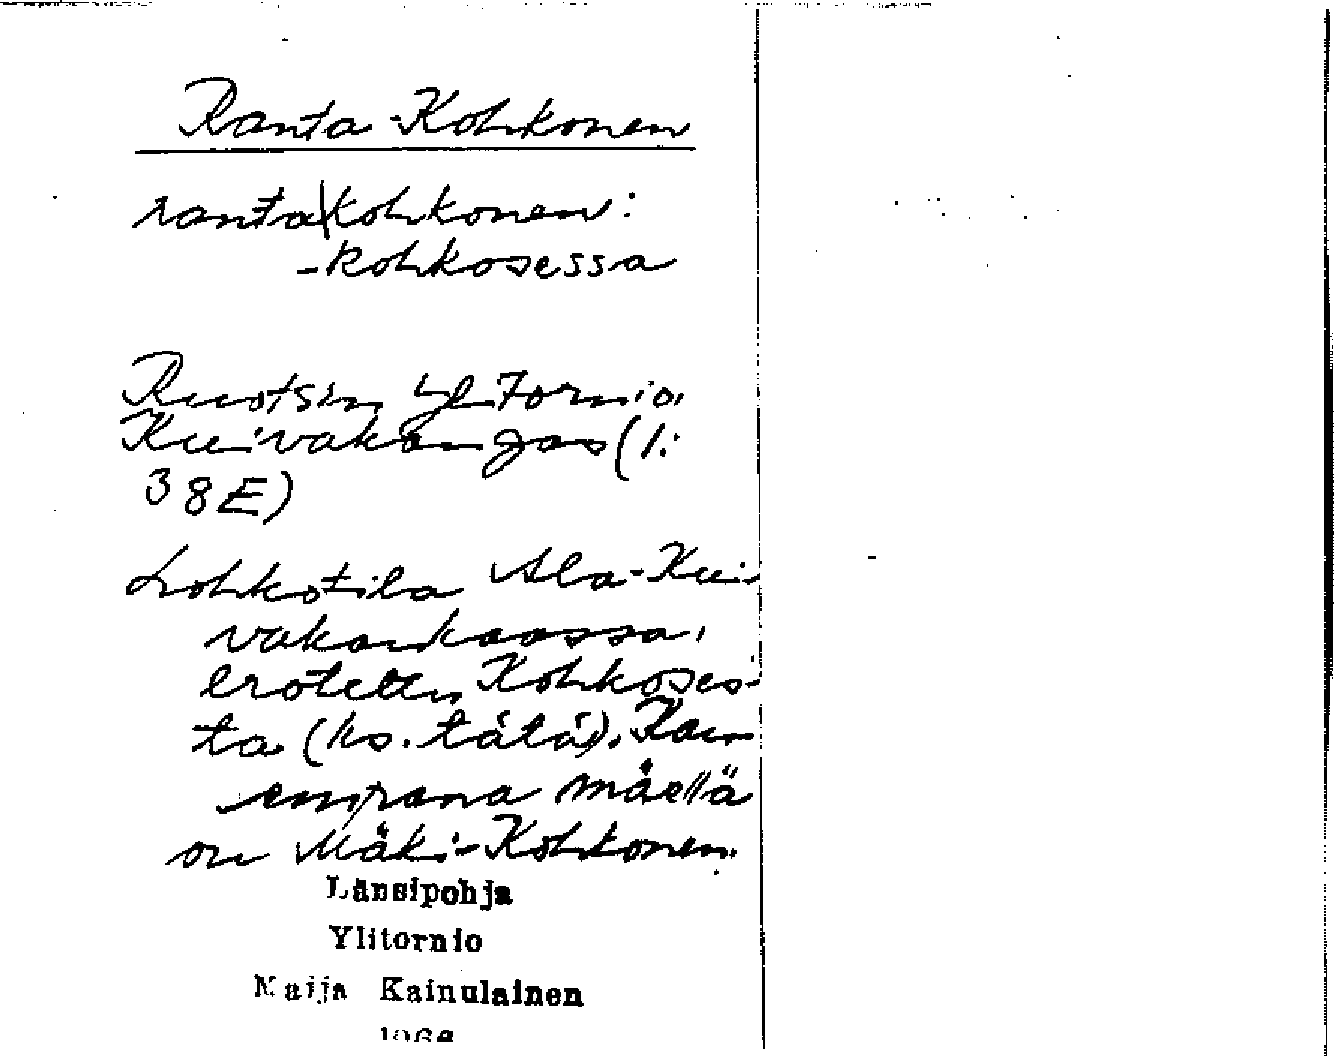 Ranta-Kohkonen
ranta|kohkonen:
-kohkosessa
Ruotsin Yl. Tornio,
Kuivakangas (1:
38E)
Lohkotila Ala-Kui-
vakankaassa,
erotettu Kohkoses-
ta (ks. tätä).
mäellä
on Mäki-Kohkonen.
Länsipohja
Ylitornio
Maija Kainulainen